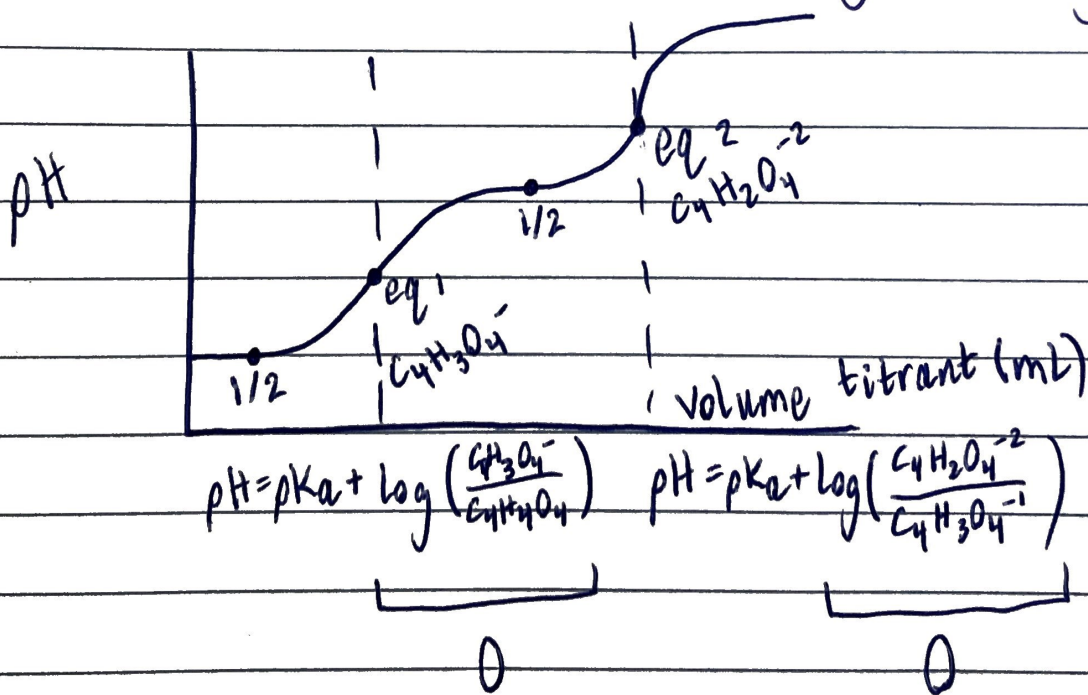 pH
eq 2
C₄H₂O₄⁻²
1/2
eq 1
C₄H₃O₄⁻
1/2
volume titrant (mL)
pH = pKa + log (C₄H₃O₄⁻ / C₄H₄O₄)
pH = pKa + log (C₄H₂O₄⁻² / C₄H₃O₄⁻¹)
0
0